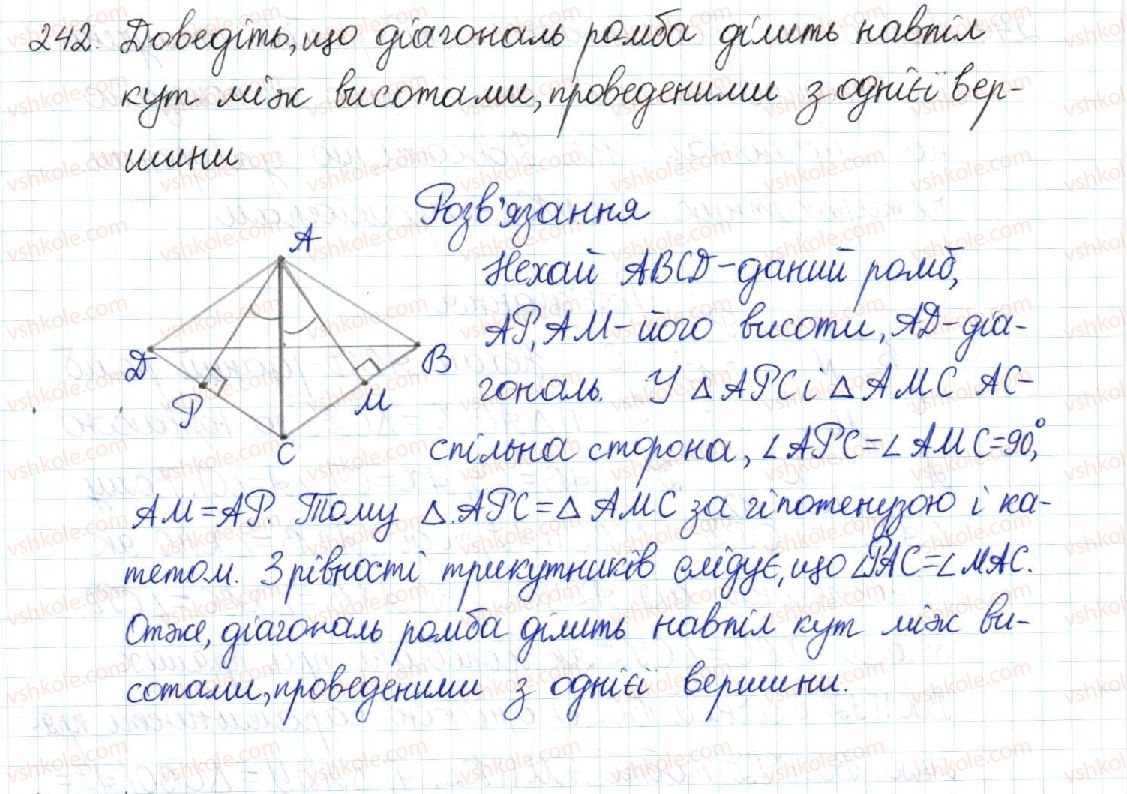 242. Доведіть, що діагональ ромба ділить навпіл
кут між висотами, проведеними з однієї вер-
шини
Розв'язання
A
D
B
P
M
C
Нехай ABCD-даний ромб,
AP, AM-його висоти, AD-діа-
гональ. У △APC і △AMC AC-
спільна сторона, ∠APC=∠AMC=90°,
AM=AP. Тому △.APC=△AMC за гіпотенузою і ка-
тетом. З рівності трикутників слідує, що ∠PAC=∠MAC.
Отже, діагональ ромба ділить навпіл кут між ви-
сотами, проведеними з однієї вершини.
vshkole.com